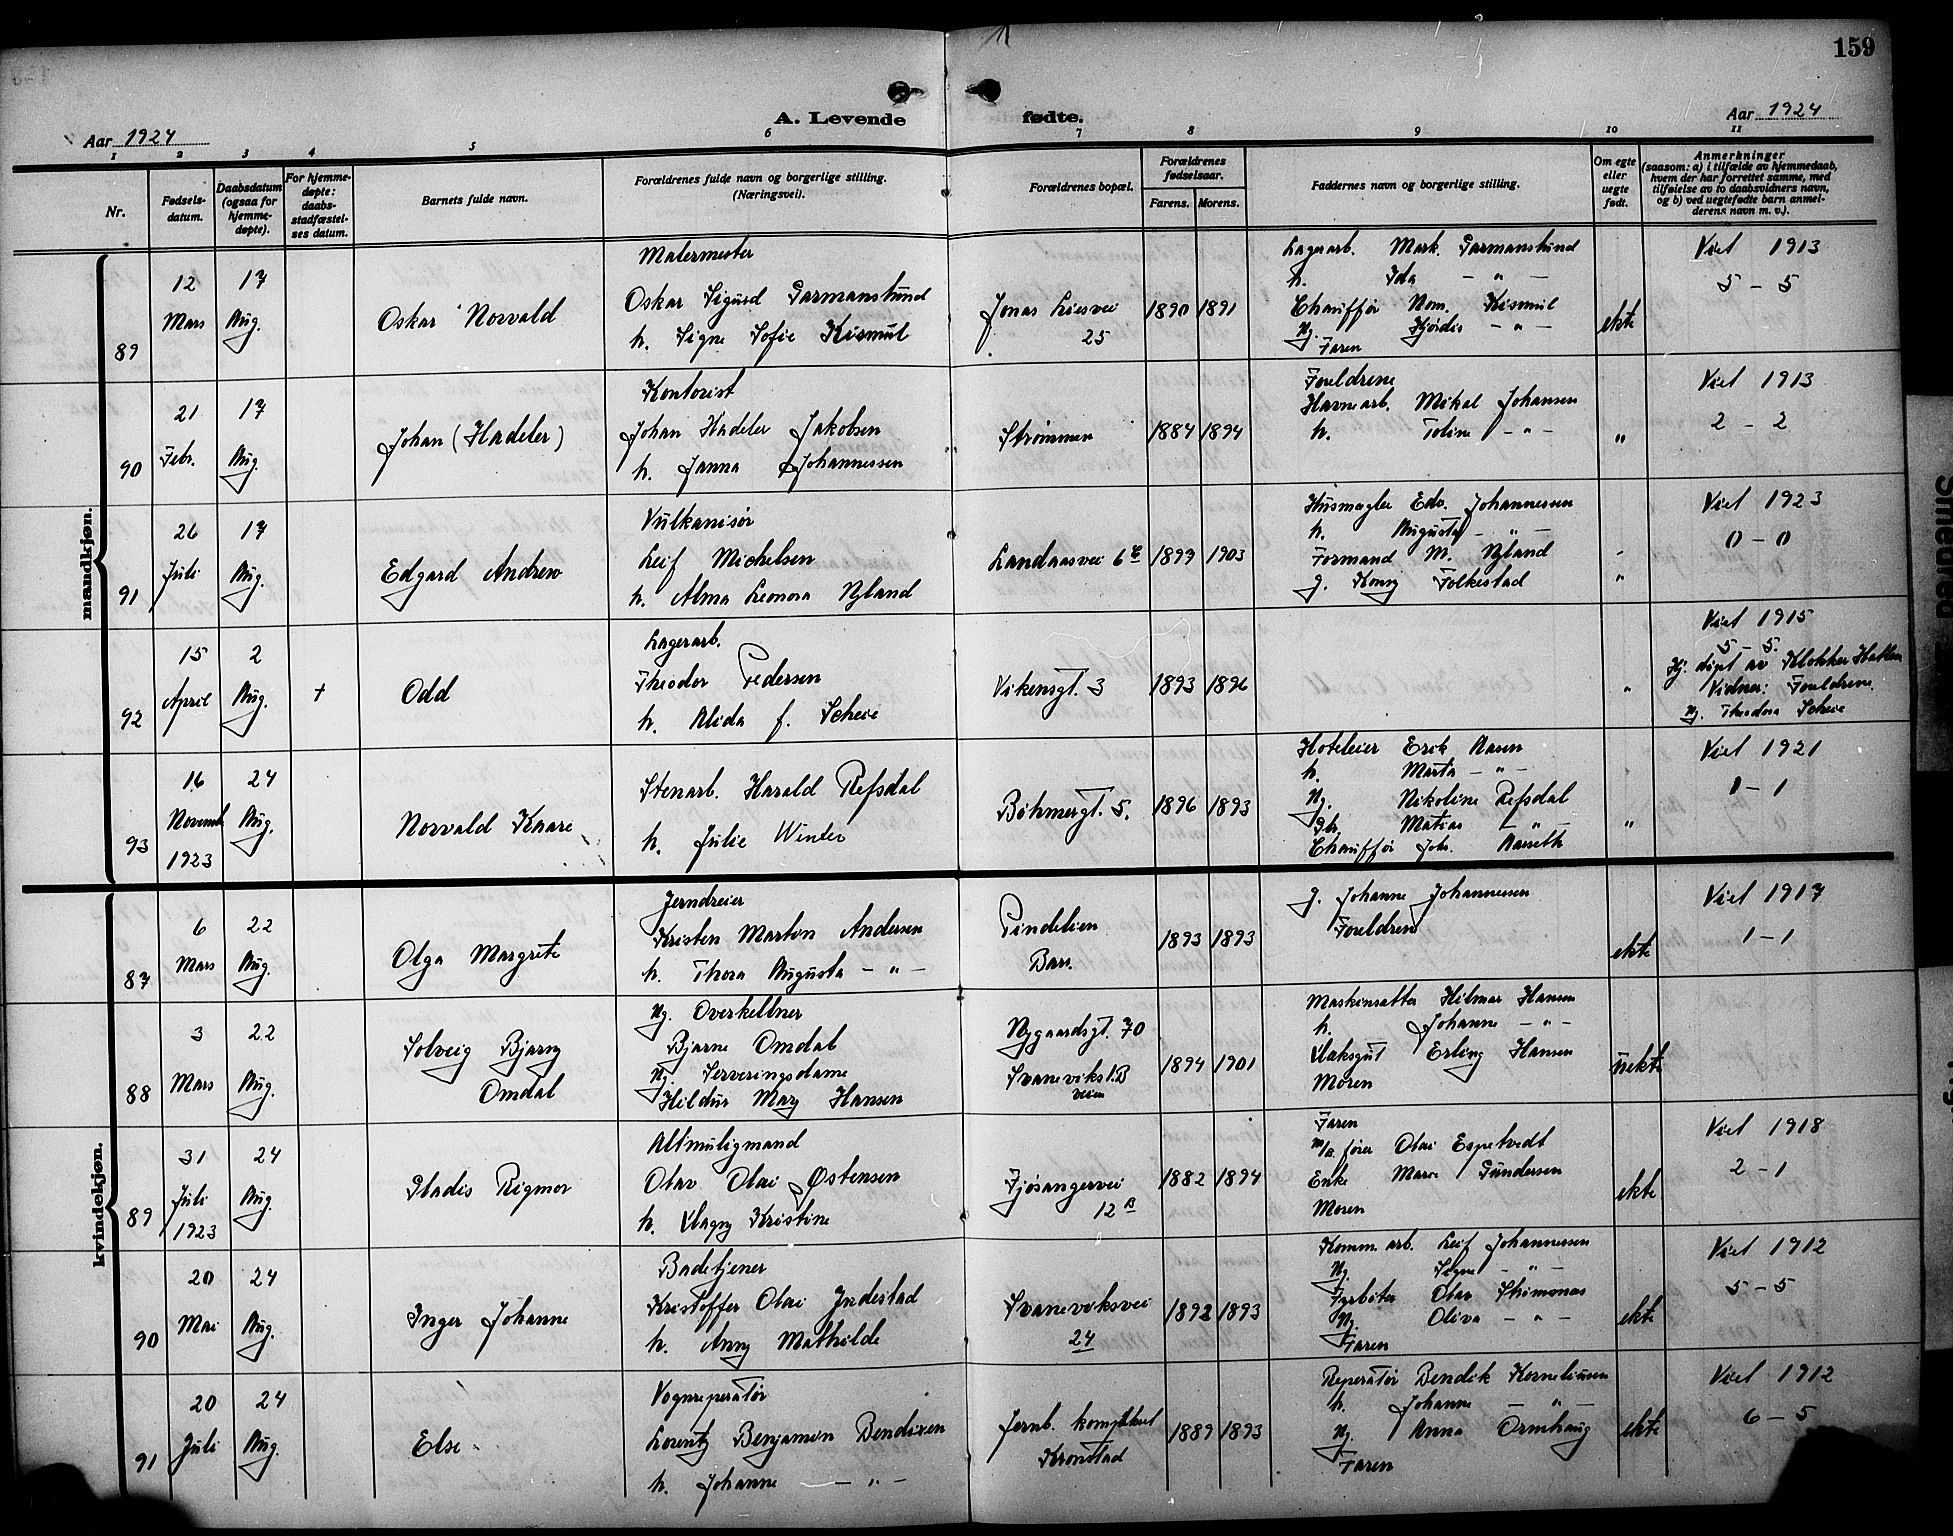 159
A. Levende fødte.
Aar 1924
Aar 1924
1 2 3 4 5 6 7 8 9 10 11
Nr.
Fødsels-
datum.
Daabsdatum
(ogsaa for
hjemme-
døpte).
For hjemme-
døpte:
daabs-
stadfæstel-
ses datum.
Barnets fulde navn.
Forældrenes fulde navn og borgerlige stilling.
(Næringsvei).
Forældrenes bopæl.
Forældrenes
fødselsaar.
Farens. Morens.
Faddernes navn og borgerlige stilling.
Om egte
eller
uegte
født.
Anmerkninger
(saasom: a) i tilfælde av hjemmedaab,
hvem der har forrettet samme, med
tilføielse av to daabsvidners navn,
og b) ved uegtefødte barn anmel-
derens navn m. v.).
mandkjøn.
89
12
Mars
17
Aug.
Oskar Norvald
Malermester
Oskar Sigurd Garmanslund
h. Signe Sofie Kismul
Jonas Liesvei
25
1890 1891
Lagerarb. Mark. Garmanslund
h. Ida — " —
Chauffør Nom. Kismul
Ug. Hjørdis — " —
Faren
ekte
Viet 1913
5 – 5
90
21
Febr.
17
Aug.
Johan (Hadeler)
Kontorist
Johan Hadeler Jakobsen
h. Janna Johannessen
Strømmen
1884 1894
Foreldrene
Havnearb. Mikal Johansen
h. Toline — " —
"
Viet 1913
2 – 2
91
26
Juli
17
Aug.
Edgard Andrew
Vulkanisør
Leif Michelsen
h. Alma Leonora Nyland
Landaasvei
1899 1903
Husmegler Edv. Johannesen
h. Augusta — " —
Formand M. Nyland
g. Konny Folkestad
"
Viet 1923
0 – 0
92
15
April
2
Aug.
+
Odd
Lagerarb.
Theodor Pedersen
h. Alida f. Scheie
Vikensgt. 3
1893 1896
"
Viet 1915
5 – 5.
Hj. døpt av Klokker
Vidner: Foreldrene.
Ug. Theodora Scheie
93
16
Novemb
1923
24
Aug.
Norvald Kaare
Stenarb. Harald Refsdal
h. Julie Winter
Bøhmergt. 5.
1896 1893
Hoteleier Erik Aasen
h. Marta — " —
Ug. Nikoline Refsdal
Matias — " —
Chauffør Joh.
"
Viet 1921
1 – 1
kvindekjøn.
87
6
Mars
22
Aug.
Olga Margrete
Jerndreier
Kristen Marton Andersen
h. Thora Augusta — " —
Pindelien
Bar.
1893 1893
g. Johanne Johannessen
Foreldrene
ekte
Viet 1917
1 – 1
88
3
Mars
22
Aug.
Solveig Bjarny
Omdal
Ug. Overkellner
Bjarne Omdal
Ug. Serveringsdame
Hildur Mary Hansen
Nygaardsgt. 70
Svaneviks
veien
1894 1901
Maskinsætter Hilmar Hansen
h. Johanne — " —
Erling Hansen
Moren
uekte
89
31
Juli
1923
24
Aug.
Gladis Rigmor
Altmuligmand
Olav Olai Østensen
h. Magny Kristine
Fjøsangervei
12 B
1882 1894
Faren
fører Olai Espetvedt
Enke Marie Gundersen
Moren
ekte
Viet 1918
2 – 1
90
20
Mai
24
Aug.
Inger Johanne
Badetjener
Kristoffer Olai Indestad
h. Anny Mathilde
Svaneviksvei
24
1892 1893
Komm. arb. Leif Johannessen
Ug. Signe — " —
Fyrbøter Olav
Ug. Oliva — " —
Faren
ekte
Viet 1912
5 – 5
91
20
Juli
24
Aug.
Else
Vognreperatør
Lorentz Benjamin Bendixen
h. Johanne — " —
Jernb.
Kronstad
1889 1893
Reperatør Bendik Korneliussen
h. Johanne — " —
Ug. Anna Ormhaug
Faren
ekte
Viet 1912
6 – 5